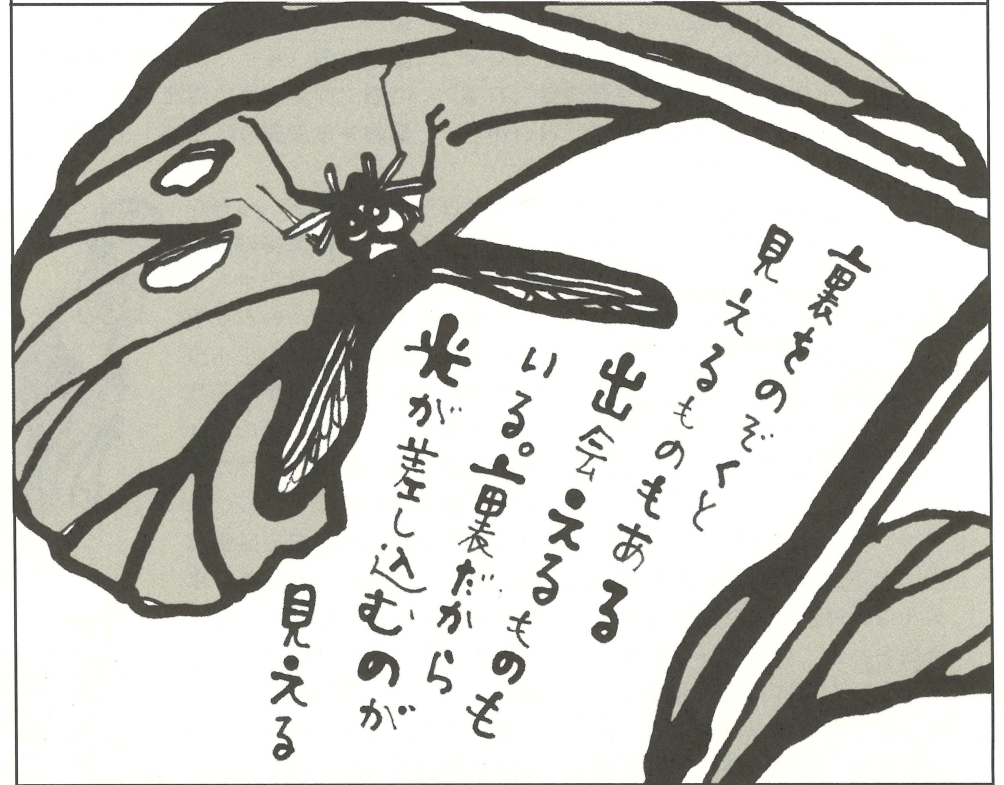 裏をのぞくと
見えるものもある
出会えるものも
いる。裏だから
光が差し込むのが
見える